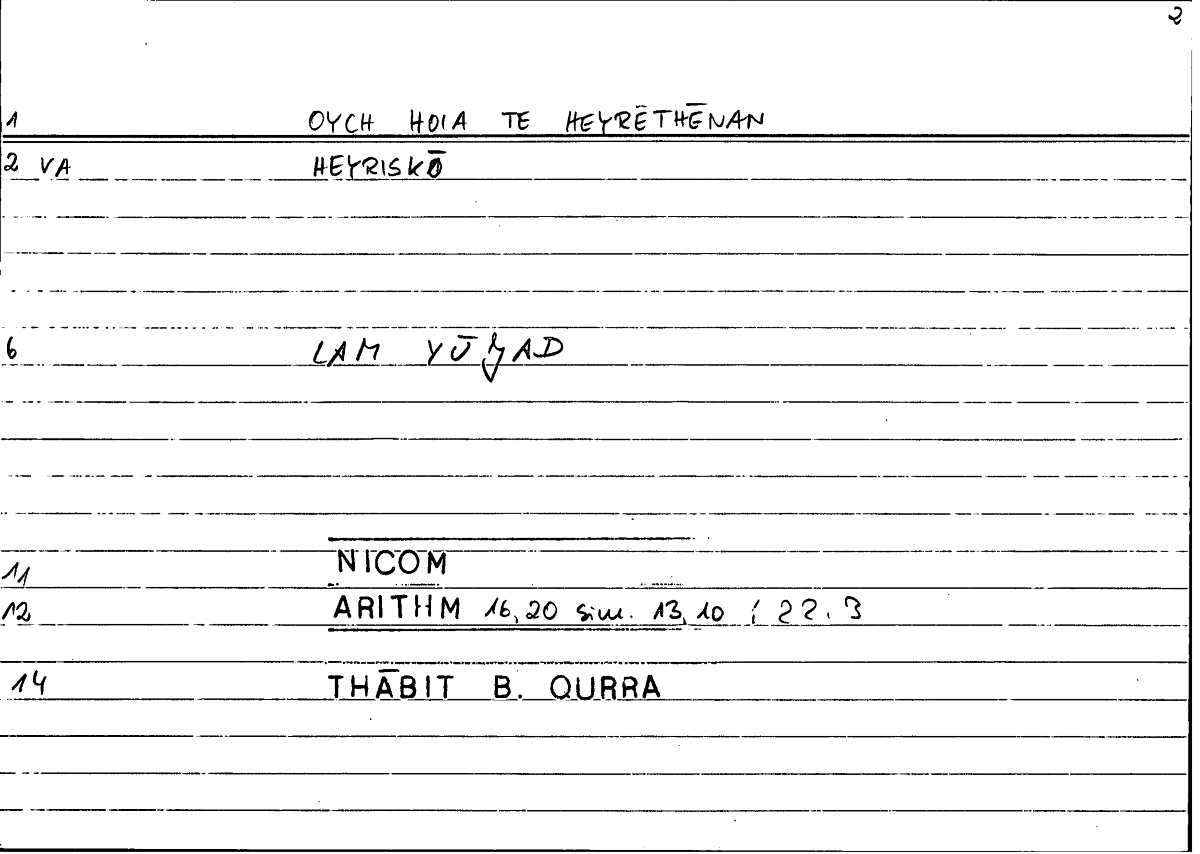 2
1 OYCH HOIA TE HEYRĒTHĒNAN
2 VA HEYRISKŌ
6 LAM YŪǦAD
11 NICOM
12 ARITHM 16,20 sim. 13,10 ; 22.3
14 THĀBIT B. QURRA